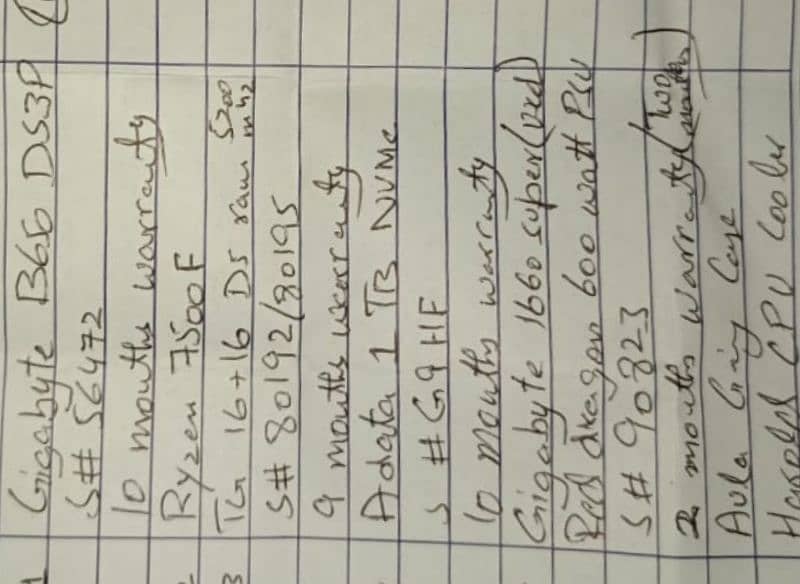 Gigabyte B650 DS3P
S# 56472
10 months warranty
Ryzen 7500F
TG 16+16 D5 ram 5200 mhz
S# 80192/80195
9 months warranty
Adata 1 TB NVMe
S # G9HF
10 months warranty
Gigabyte 1660 super (Used)
Red dragon 600 watt PSU
S# 90823
2 months warranty (Two months)
Aula Gming Case
CPU Cooler